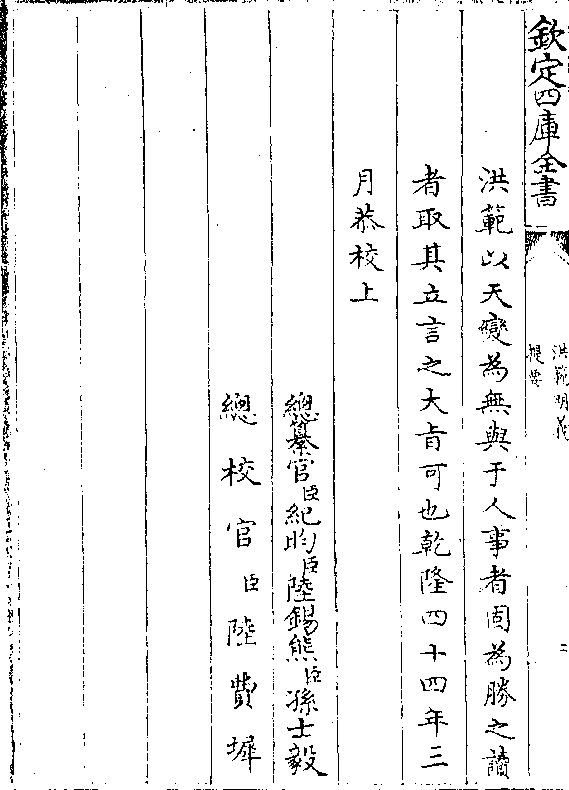 欽定四庫全書
洪範明義
提要
二
洪範以天變為無與于人事者固為勝之讀
者取其立言之大旨可也乾隆四十四年三
月恭校上
總纂官臣紀昀臣陸錫熊臣孫士毅
總校官臣陸費墀